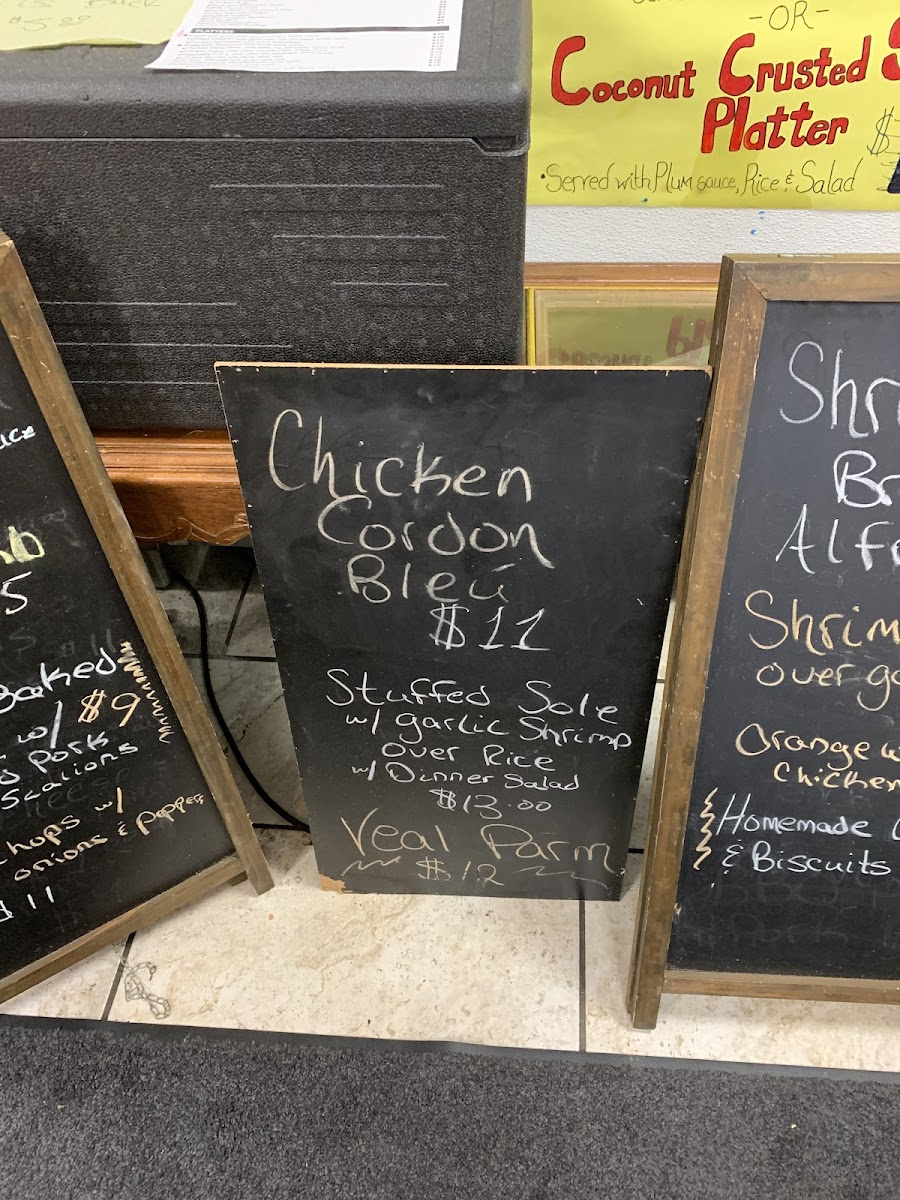 $5.00
PLATTERS
-OR-
Coconut Crusted
Platter
•Served with Plum sauce, Rice & Salad
5
Baked
w/ $9
Pork
Scallions
w/
onions & Peppers
$11
Chicken
Cordon
Bleú
$11
Stuffed Sole
w/ garlic Shrimp
over Rice
w/ Dinner Salad
$13.00
Veal Parm
$12
Shr
Br
Alf
Shrim
over ga
Orange
Chicken
Homemade
& Biscuits